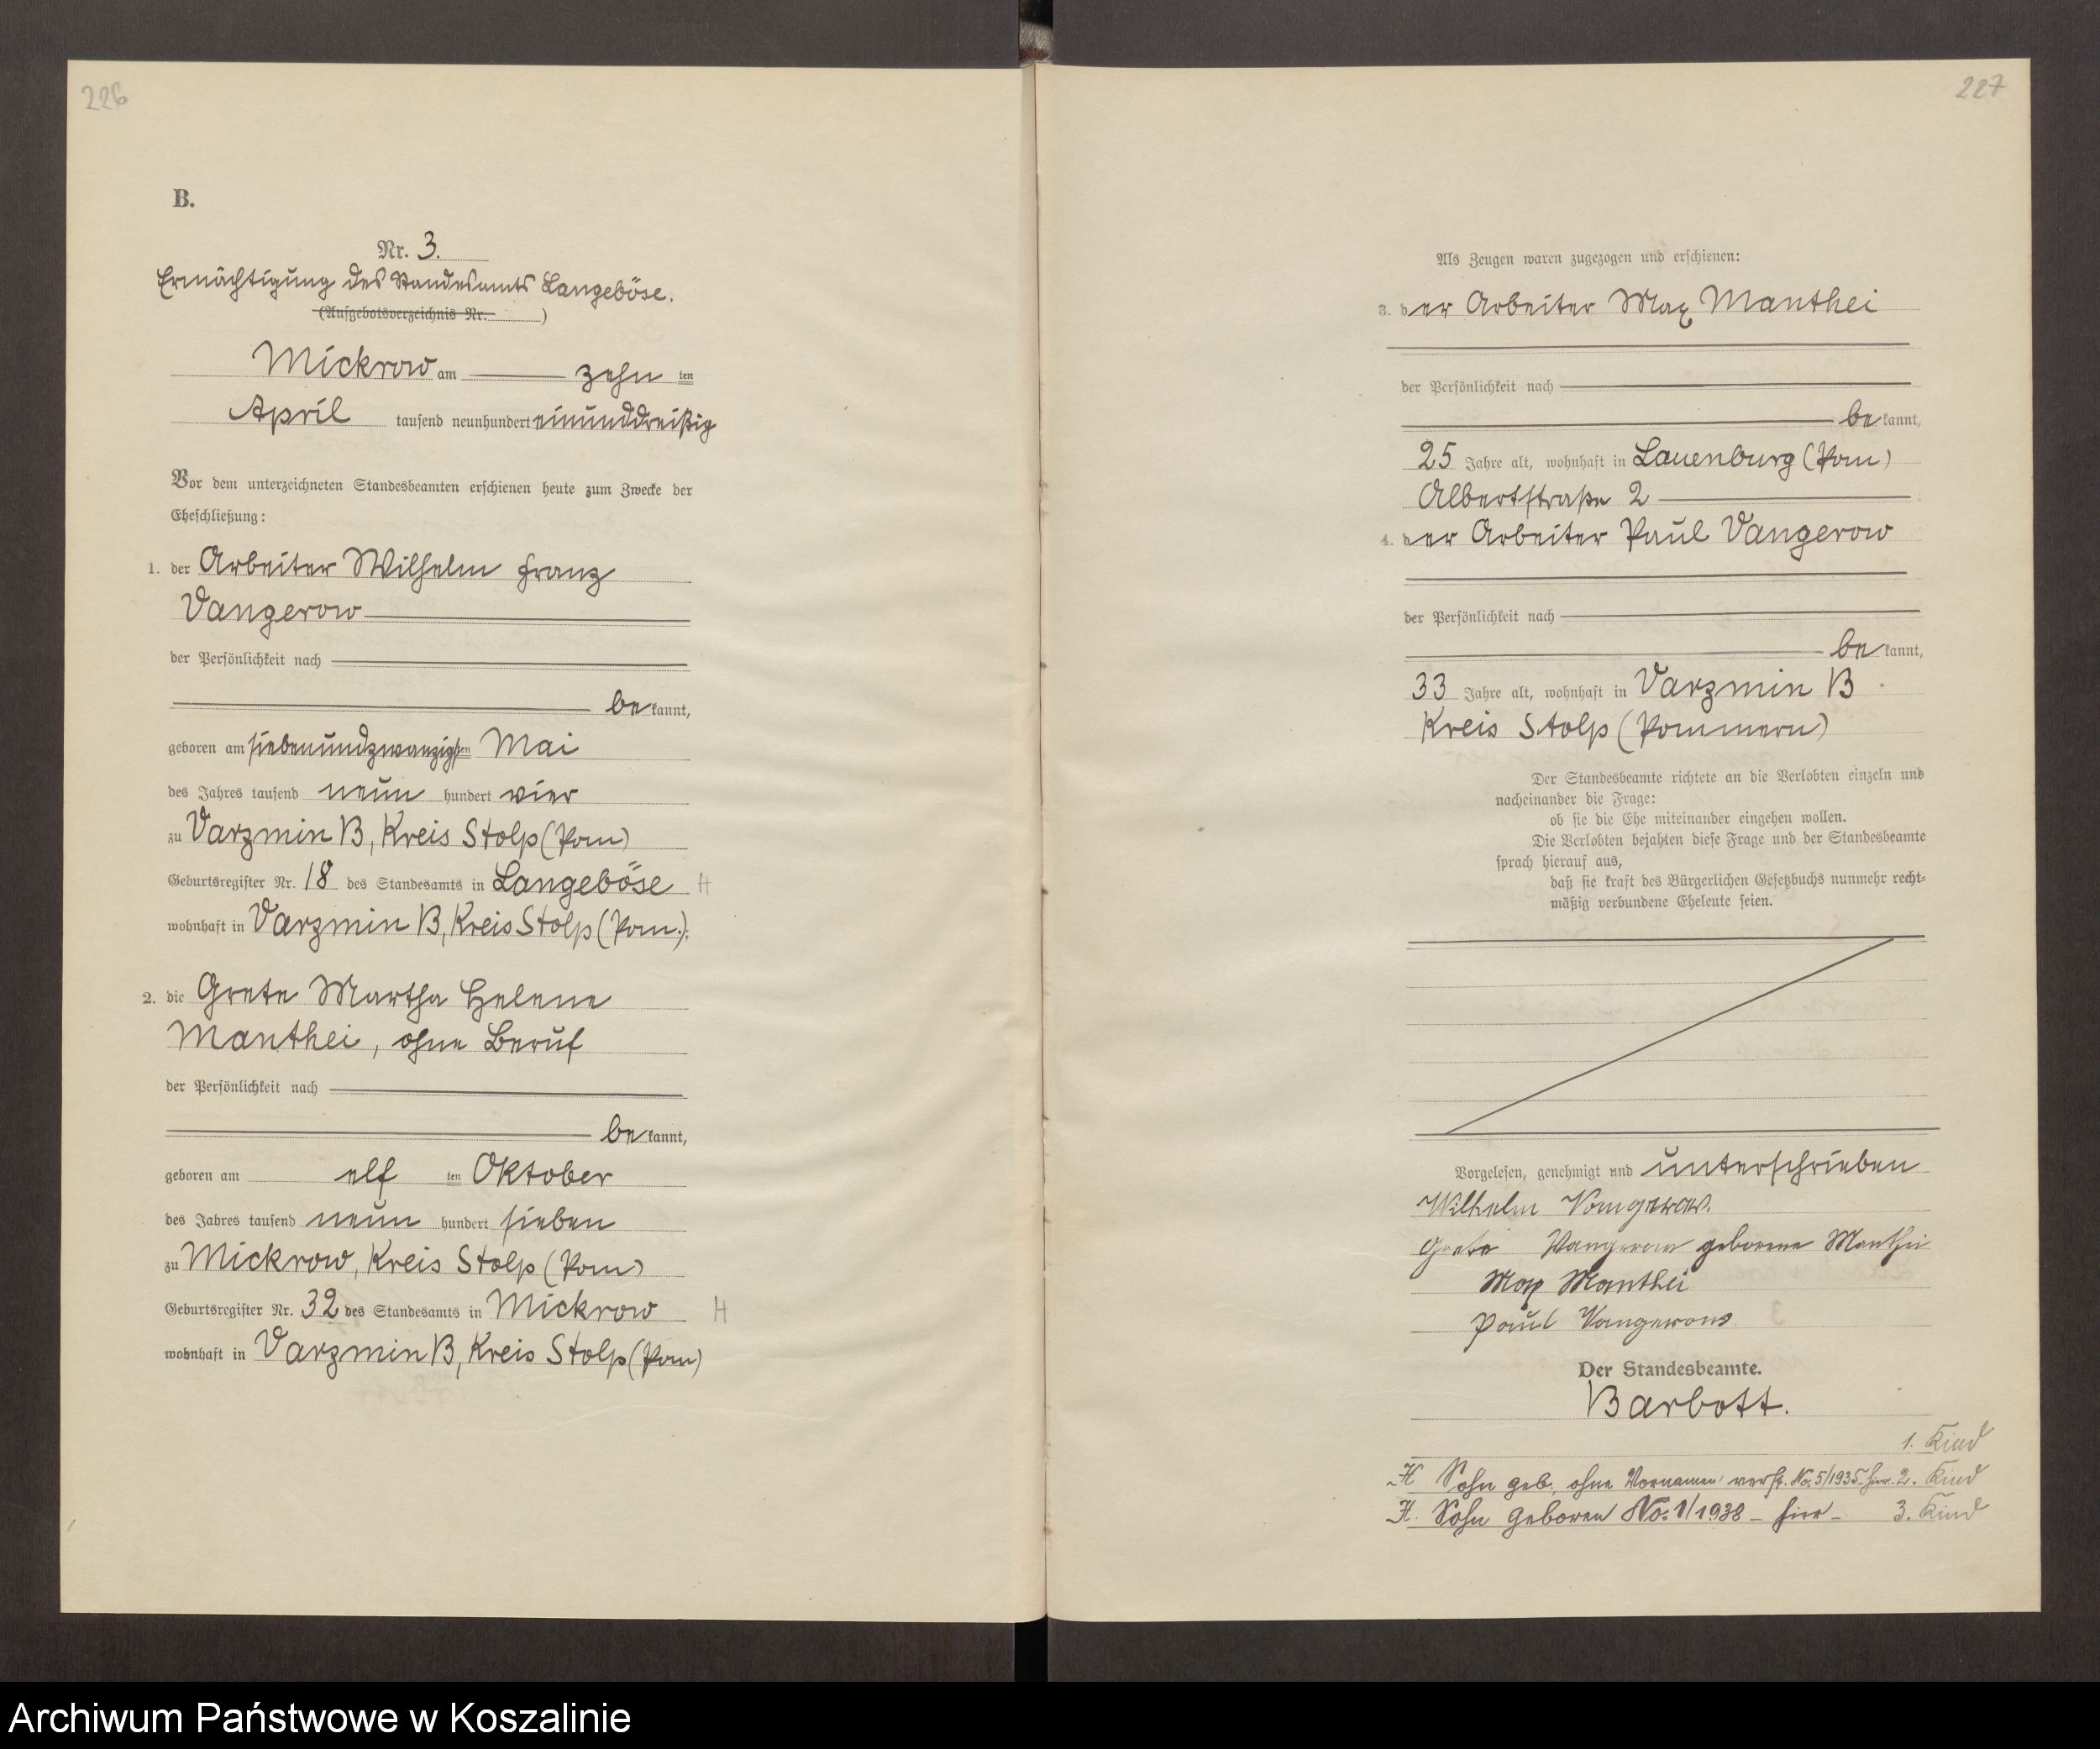 226
B.
Nr. 3.
Ermächtigung des Standesamts Langeböse.
(Aufgebotsverzeichnis Nr. )
Mickrow am zehn ten
April tausend neunhundert einunddreißig
Vor dem unterzeichneten Standesbeamten erschienen heute zum Zwecke der
Eheschließung:
1. der Arbeiter Wilhelm Franz
Vangerow
der Persönlichkeit nach
be kannt,
geboren am siebenundzwanzigsten Mai
des Jahres tausend neun hundert vier
zu Varzmin B, Kreis Stolp (Pom)
Geburtsregister Nr. 18 des Standesamts in Langeböse H
wohnhaft in Varzmin B, Kreis Stolp (Pom.).
2. die Grete Martha Helene
Manthei, ohne Beruf
der Persönlichkeit nach
be kannt,
geboren am elf ten Oktober
des Jahres tausend neun hundert sieben
zu Mickrow, Kreis Stolp (Pom)
Geburtsregister Nr. 32 des Standesamts in Mickrow H
wohnhaft in Varzmin B, Kreis Stolp (Pom)
227
Als Zeugen waren zugezogen und erschienen:
3. der Arbeiter Max Manthei
der Persönlichkeit nach
be kannt,
25 Jahre alt, wohnhaft in Lauenburg (Pom)
Albertstraße 2
4. der Arbeiter Paul Vangerow
der Persönlichkeit nach
be kannt,
33 Jahre alt, wohnhaft in Varzmin B
Kreis Stolp (Pommern)
Der Standesbeamte richtete an die Verlobten einzeln und
nacheinander die Frage:
ob sie die Ehe miteinander eingehen wollen.
Die Verlobten bejahten diese Frage und der Standesbeamte
sprach hierauf aus,
daß sie kraft des Bürgerlichen Gesetzbuchs nunmehr recht-
mäßig verbundene Eheleute seien.
Vorgelesen, genehmigt und unterschrieben
Wilhelm Vangerow.
Grete Vangerow geborene Manthei
Max Manthei
Paul Vangerow
Der Standesbeamte.
Barbott.
1. Kind
H Sohn geb., ohne Vornamen verst. No. 5/1935 hier. 2. Kind
H. Sohn geboren No. 1/1938 - hier - 3. Kind
Archiwum Państwowe w Koszalinie